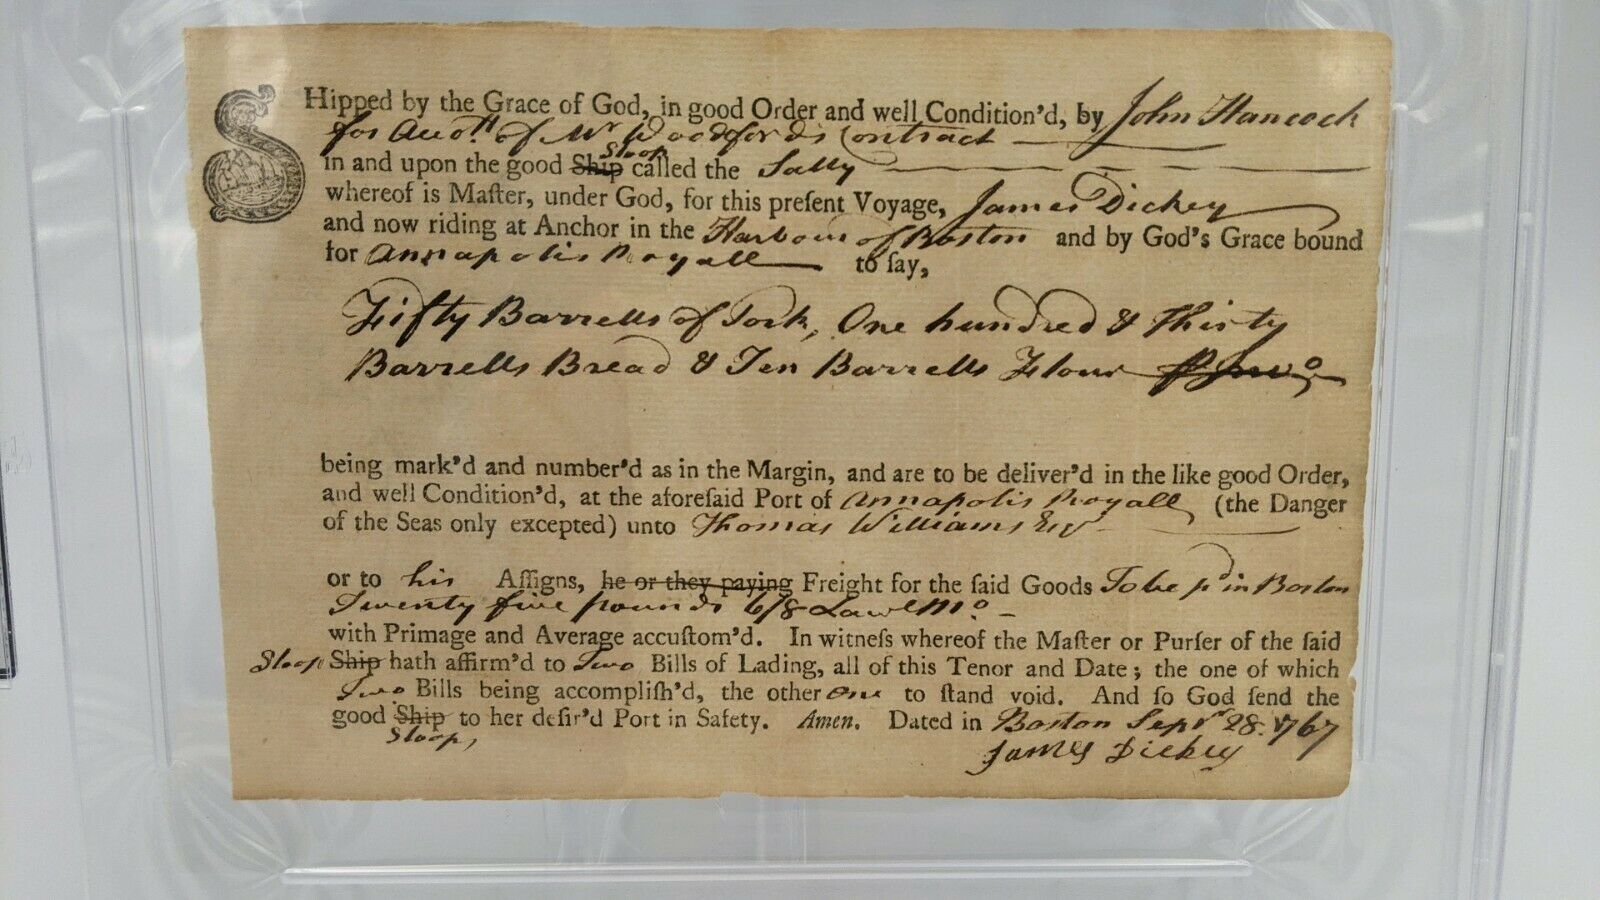 SHipped by the Grace of God, in good Order and well Condition'd, by John Hancock
for Acco.tt of Mr Woodfords Contract
in and upon the good Ship Sloop called the Sally
whereof is Maſter, under God, for this preſent Voyage, James Dickey
and now riding at Anchor in the Harbour of Boston and by God's Grace bound
for Annapolis Royall to ſay,
Fifty Barrells of Pork, One hundred & Thirty
Barrells Bread & Ten Barrells Flour
being mark'd and number'd as in the Margin, and are to be deliver'd in the like good Order,
and well Condition'd, at the aforeſaid Port of Annapolis Royall (the Danger
of the Seas only excepted) unto Thomas Williams Esqr
or to his Aſſigns, he or they paying Freight for the ſaid Goods To be pd in Boston
Twenty five pounds 6/8 Lawl Mo
with Primage and Average accuſtom'd. In witneſs whereof the Maſter or Purſer of the ſaid
Sloop Ship hath affirm'd to Two Bills of Lading, all of this Tenor and Date; the one of which
Two Bills being accompliſh'd, the other one to ſtand void. And ſo God ſend the
good Ship to her deſir'd Port in Safety. Amen. Dated in Boston Sepr 28. 1767
Sloop, James Dickey